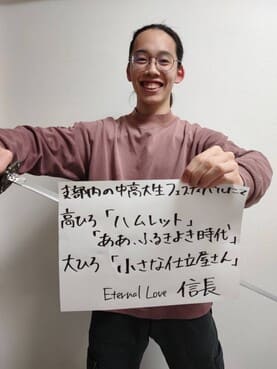 支部内の中高大生フェスティバルにて
高ひろ「ハムレット」
「ああ、ふるきよき時代」
大ひろ「小さな仕立屋さん」
Eternal Love 信長